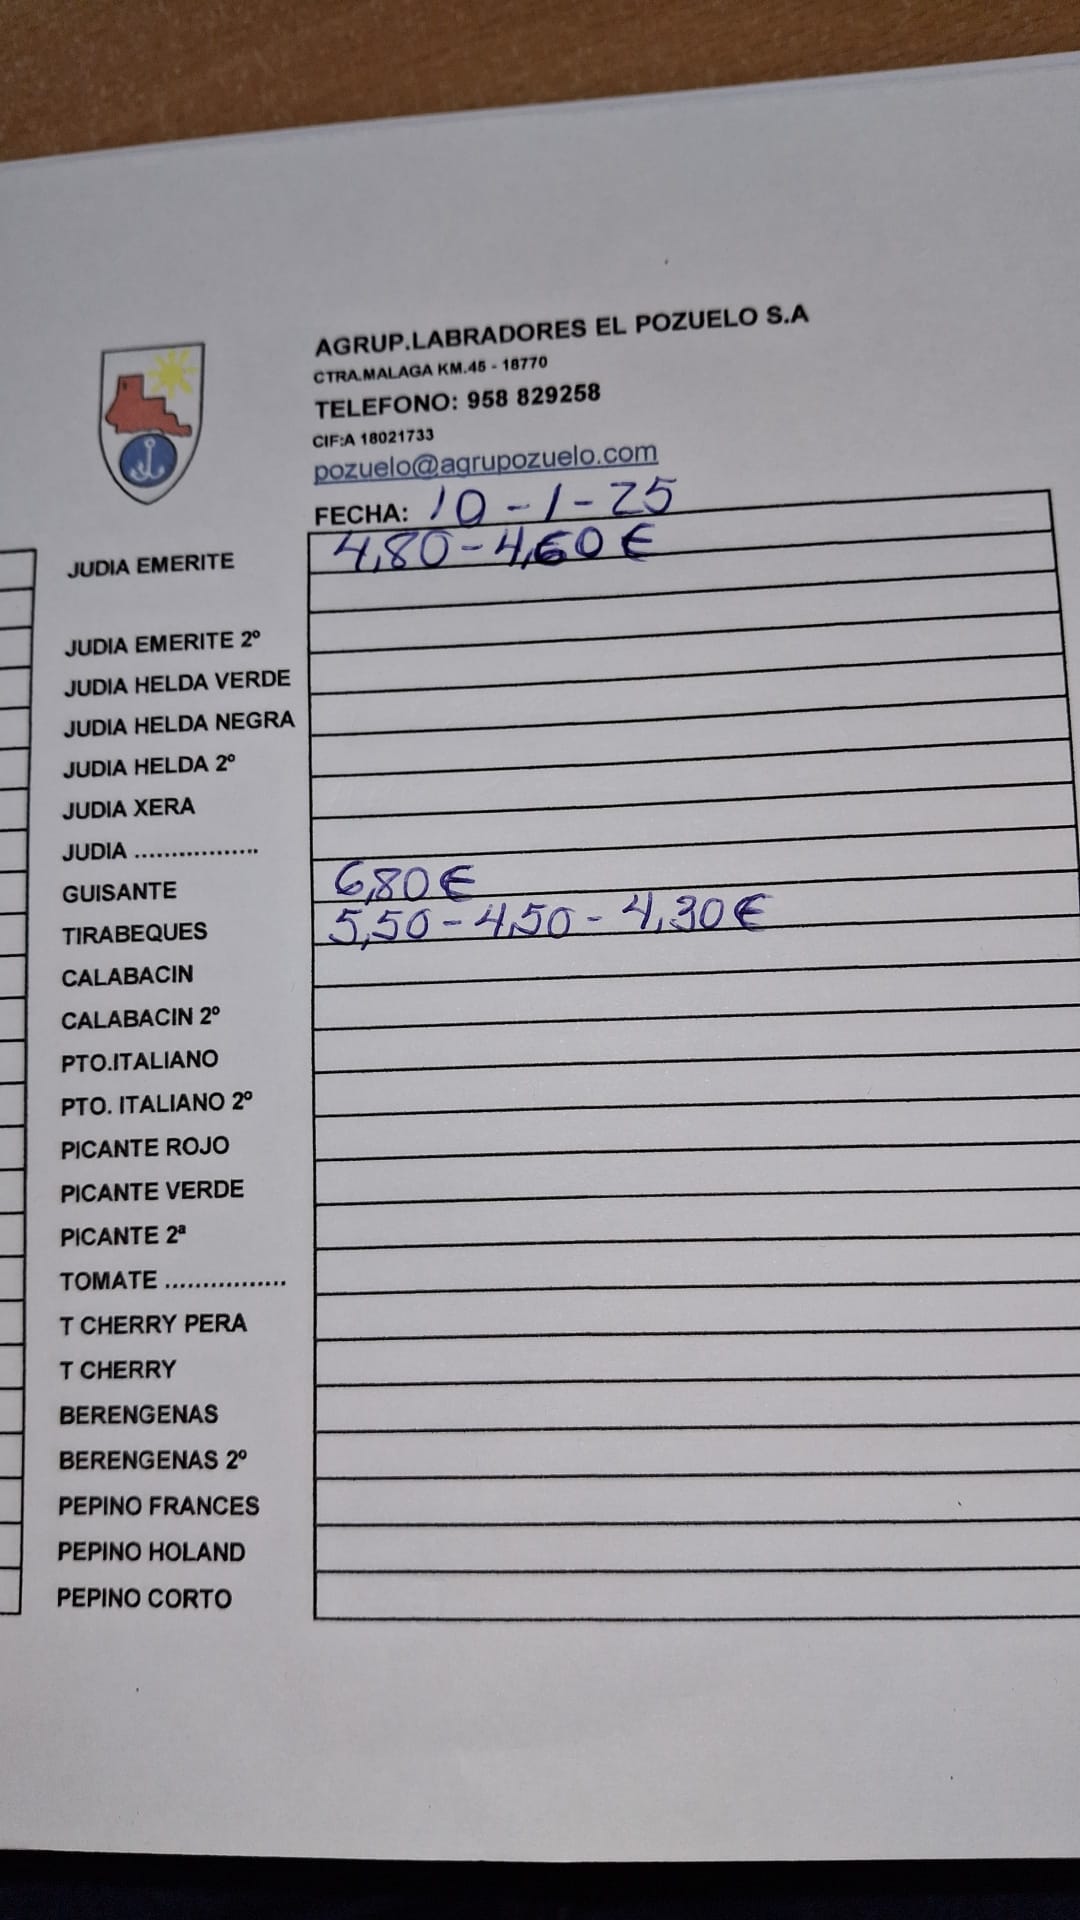 AGRUP.LABRADORES EL POZUELO S.A
CTRA.MALAGA KM.45 - 18770
TELEFONO: 958 829258
CIF:A 18021733
pozuelo@agrupozuelo.com
FECHA: 10-1-25
JUDIA EMERITE 4,80-4,60€
JUDIA EMERITE 2º
JUDIA HELDA VERDE
JUDIA HELDA NEGRA
JUDIA HELDA 2º
JUDIA XERA
JUDIA .................
GUISANTE 6,80€
TIRABEQUES 5,50-4,50-4,30€
CALABACIN
CALABACIN 2º
PTO.ITALIANO
PTO. ITALIANO 2º
PICANTE ROJO
PICANTE VERDE
PICANTE 2ª
TOMATE ................
T CHERRY PERA
T CHERRY
BERENGENAS
BERENGENAS 2º
PEPINO FRANCES
PEPINO HOLAND
PEPINO CORTO